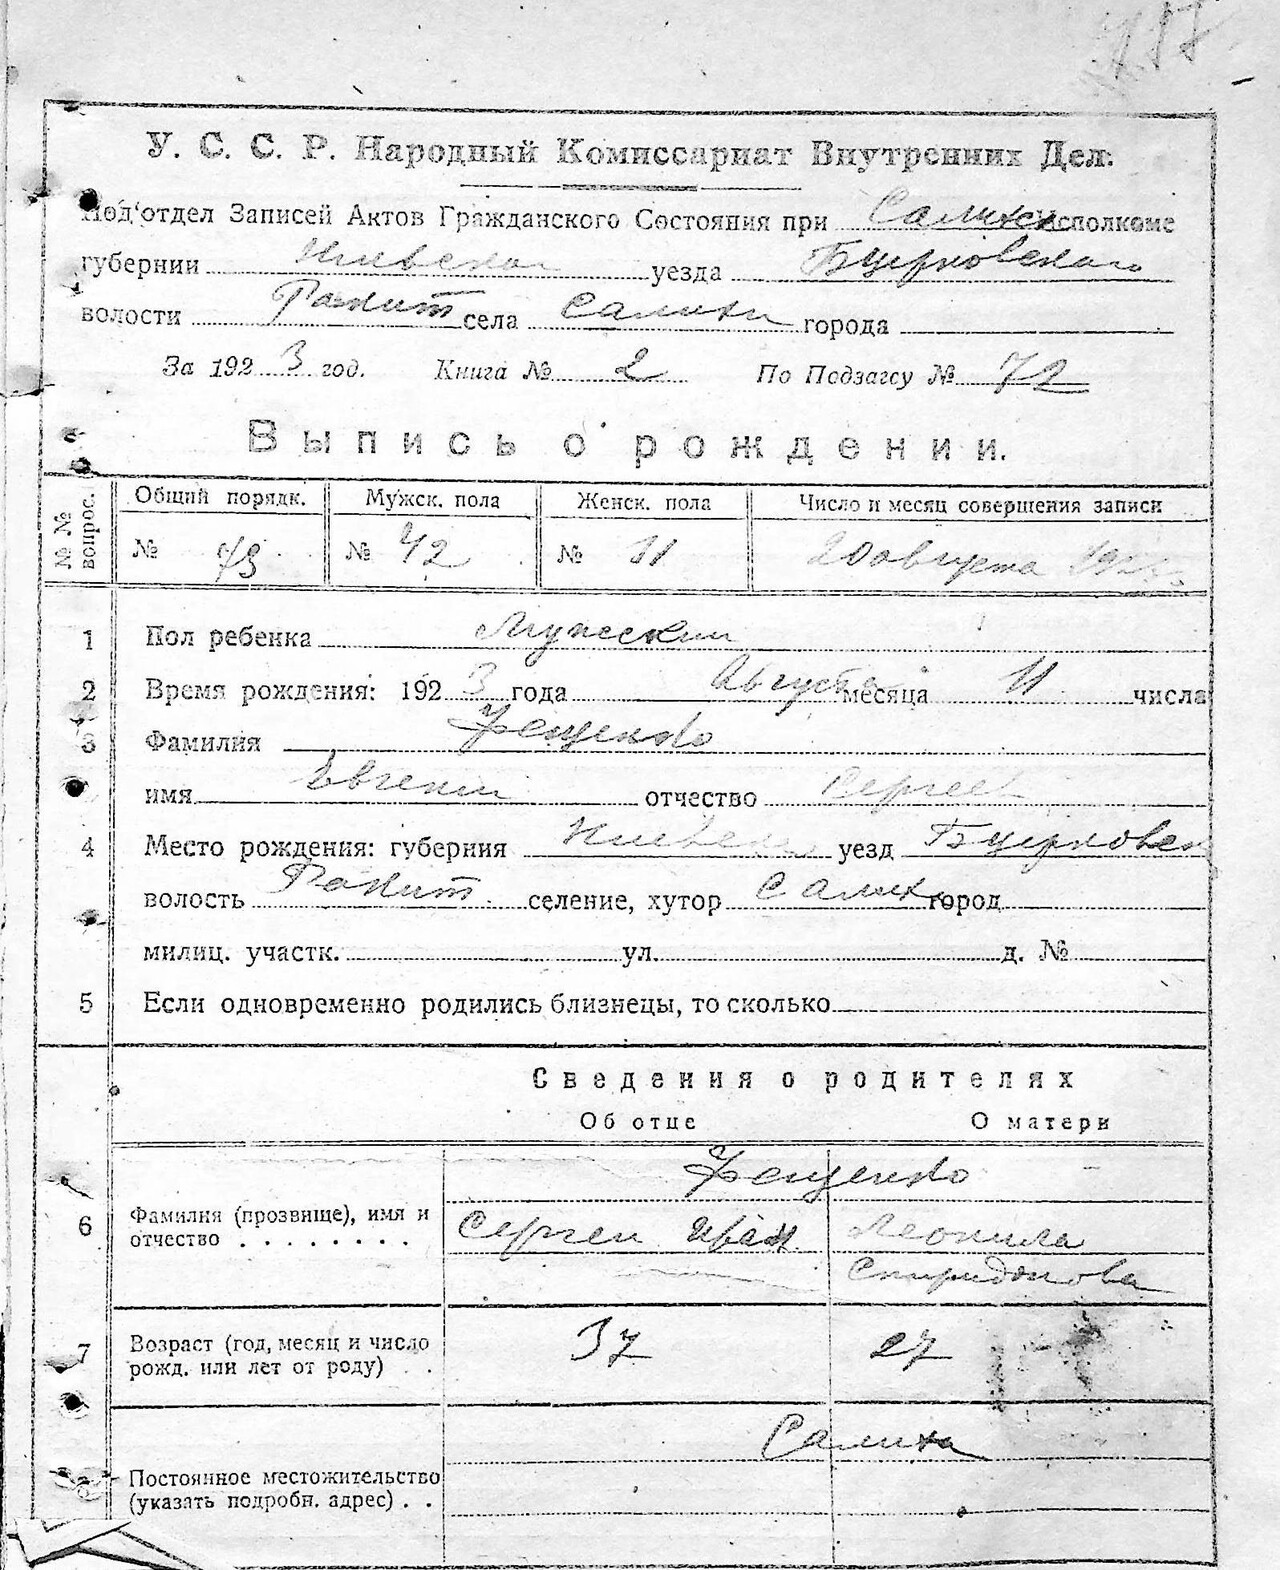 У. С. С. Р. Народный Комиссариат Внутренних Дел.
Под'отдел Записей Актов Гражданского Состояния при Салихс исполкоме
губернии Киевской уезда Бцерковского
волости Ракит села Салихи города
За 1923 год. Книга № 2 По Подзагсу № 72
Выпись о рождении.
№ № вопрос.
Общий порядк. Мужск. пола Женск. пола Число и месяц совершения записи
№ 73 № 42 № 31 20 августа
1 Пол ребенка Мужеский
2 Время рождения: 1923 года Августа месяца 11 числа
3 Фамилия Фещенко
имя Евгений отчество Сергеев
4 Место рождения: губерния Киевска уезд Бцерковск
волость Ракит селение, хутор Салиха город
милиц. участк. ул. д. №
5 Если одновременно родились близнецы, то сколько
Сведения о родителях
Об отце О матери
Фещенко
6 Фамилия (прозвище), имя и
отчество . . . . . . . .
Сергей Иван Леонила
Спиридонова
7 Возраст (год, месяц и число
рожд. или лет от роду) . .
37 27
Салиха
Постоянное местожительство
(указать подробн. адрес) . .